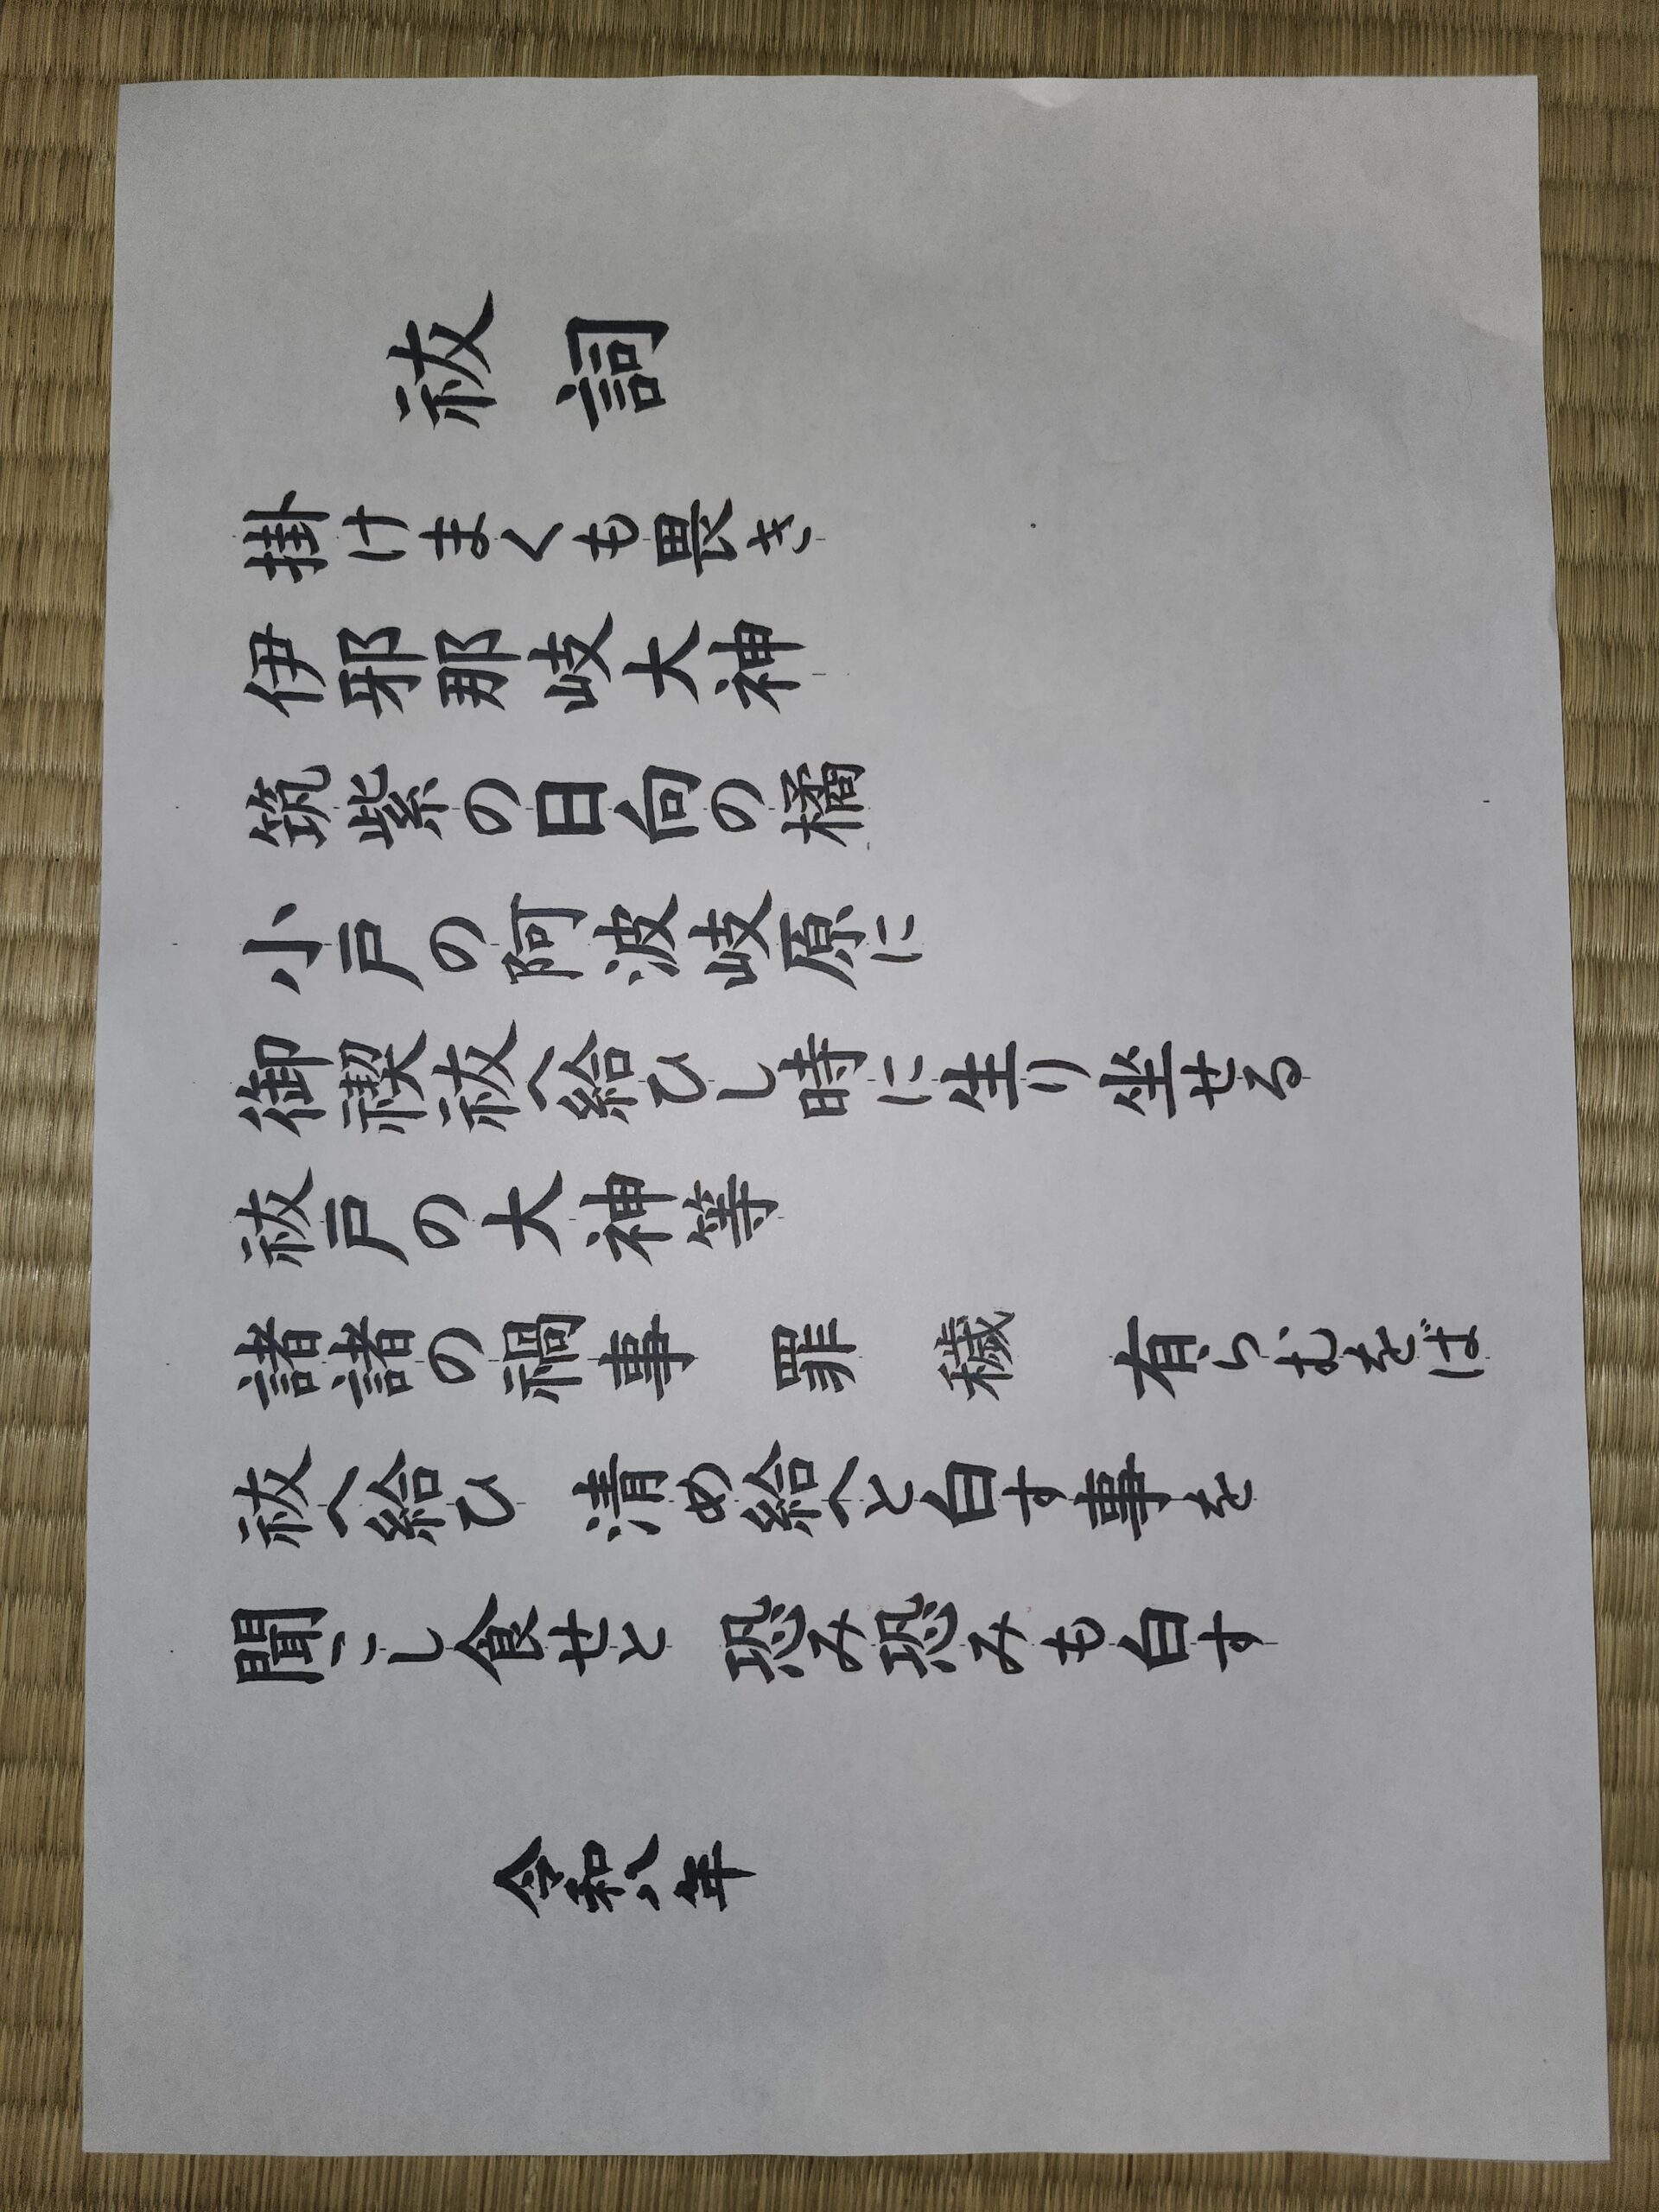 祓詞
掛けまくも畏き
伊邪那岐大神
筑紫の日向の橘
小戸の阿波岐原に
御禊祓へ給ひし時に生り坐せる
祓戸の大神等
諸諸の禍事 罪 穢 有らむをば
祓へ給ひ 清め給へと白す事を
聞こし食せと 恐み恐みも白す
令和八年